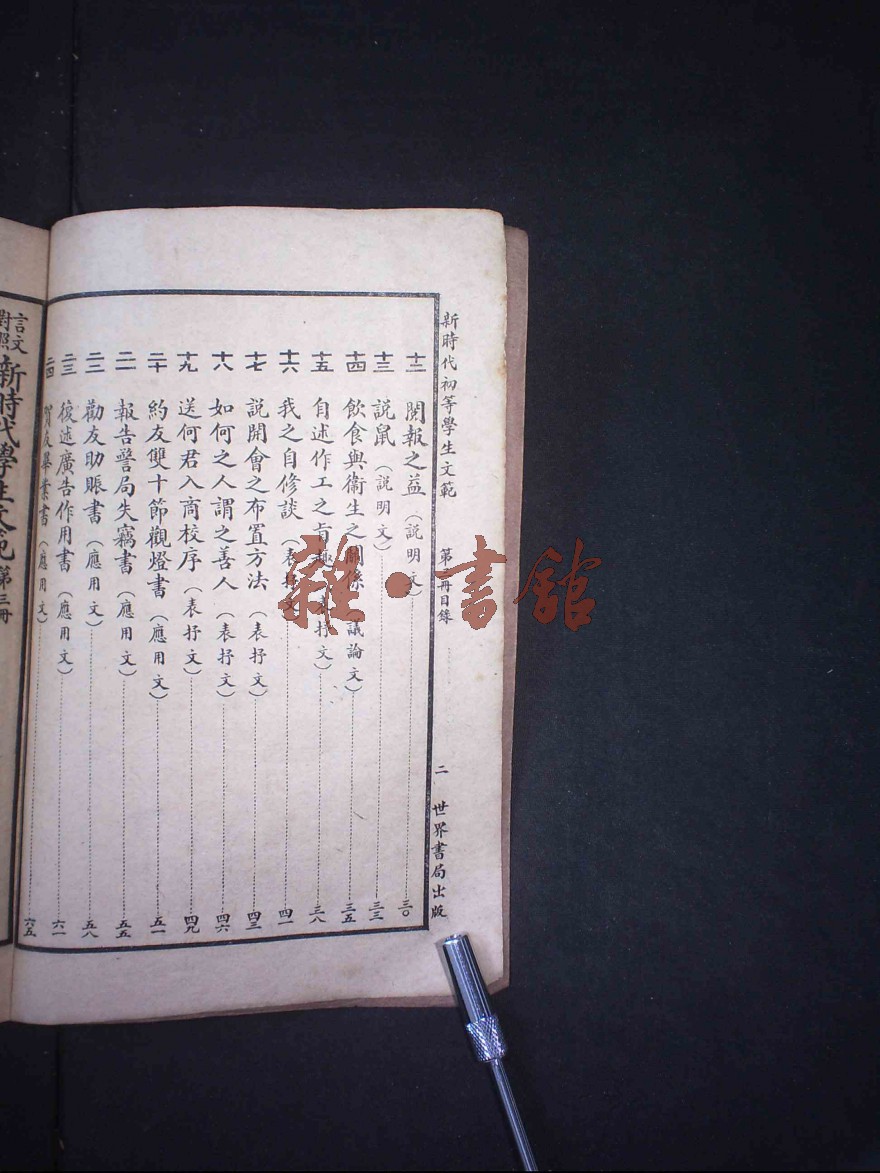 新時代初等學生文範 第三冊目錄 二 世界書局出版
十二 閱報之益（說明文）三〇
十三 說鼠（說明文）三三
十四 飲食與衞生之關係（議論文）三五
十五 自述作工之旨趣（表抒文）三八
十六 我之自修談（表抒文）四一
十七 說開會之布置方法（表抒文）四三
十八 如何之人謂之善人（表抒文）四六
十九 送何君入商校序（表抒文）四九
二十 約友雙十節觀燈書（應用文）五一
二一 報告警局失竊書（應用文）五五
二二 勸友助賑書（應用文）五八
二三 復述廣告作用書（應用文）六一
二四 賀友畢業書（應用文）六五
言文對照新時代學生文範第三冊
雜·書館